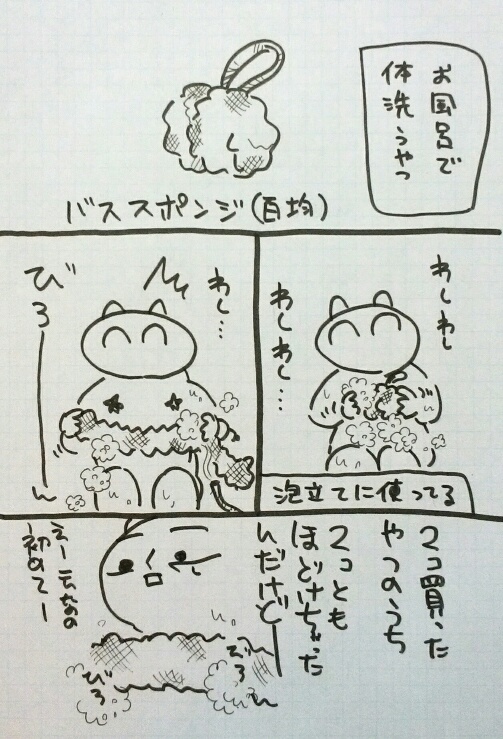 お風呂で
体洗うやつ
バススポンジ(百均)
わしわし
わしわし…
泡立てに使ってる
わし…
びろーーーん
2コ買った
やつのうち
2コとも
ほどけちゃった
んだけど
びろん
びろ
初めてー